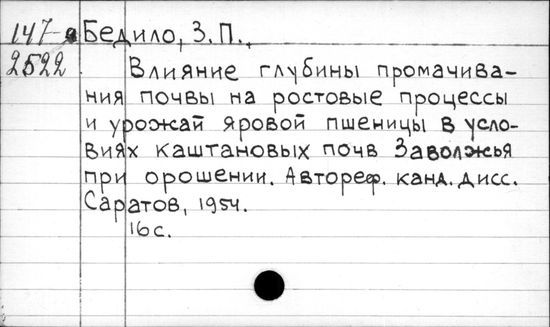 147-а Бедило, З.П.,
2522 Влияние глубины промачива-
ния почвы на ростовые процессы
и урожай яровой пшеницы в усло-
виях каштановых почв Заволжья
при орошении. Автореф. канд. дисс.
Саратов, 1954.
16 с.